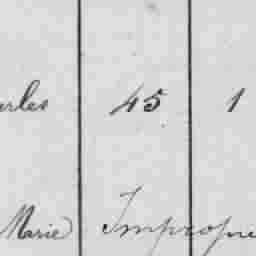 arles 45 1
Marie Impropre